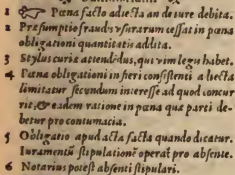 1 Pœna facto adiecta an de iure debita.
2 Præsumptio fraudis vsurarum cessat in pœna
obligationi quantitatis addita.
3 Stylus curiæ attendẽdus, qui vim legis habet.
4 Pœna obligationi in fieri consistenti adiecta
limitatur secundum interesse ad quod concur
rit, & eadem ratione in pœna quæ parti de-
betur pro contumacia.
5 Obligatio apud acta facta quando dicatur.
Iuramentũ stipulationẽ operat̃ pro absente.
6 Notarius potest absenti stipulari.